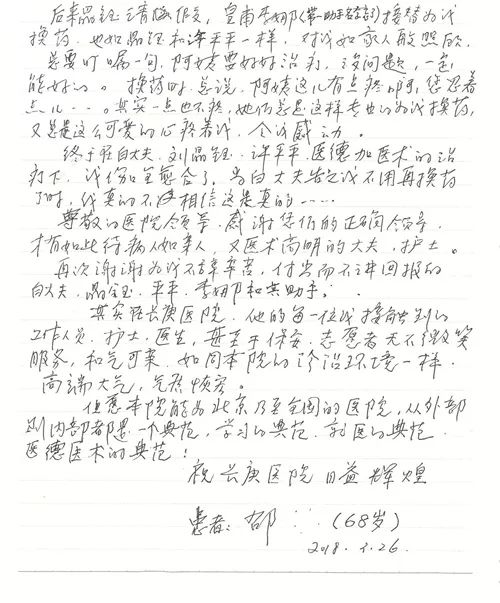 后来晶钰请假修养,皇甫李娜(第一助手名字)接替为我
换药,也如晶钰和许平平一样,对我如亲人般照顾,
总要叮嘱一句,阿姨要好好治病,没问题,一定
能好的。换药时,总说,阿姨这儿有点疼啊,您忍着
点儿…。其实一点也不疼,她们总是这样专业的为我换药,
又总是这么可爱的心疼着我,令我感动。
终于在白大夫、刘晶钰、许平平医德加医术的治
疗下,我伤口全愈合了。当白大夫告之我不用再换药
了时,我真的不敢相信这是真的……
尊敬的医院领导,感谢您们的正确领导,
才有如此待病人如亲人,又医术高明的大夫、护士。
再次谢谢为我不辞辛苦,付出而不讲回报的
白大夫、晶钰、平平、李娜和其助手。
其实在长庚医院,他们的每一位我接触到的
工作人员,护士、医生,甚至于保安、志愿者无不微笑
服务,和气可亲,如同本院的诊治环境一样,
高端大气,气质倾君。
但愿本院能为北京乃至全国的医院,从外部
到内部都是一个典范,学习的典范、就医的典范、
医德医术的典范!
祝长庚医院日益辉煌
患者:邵 (68岁)
2018.3.26.